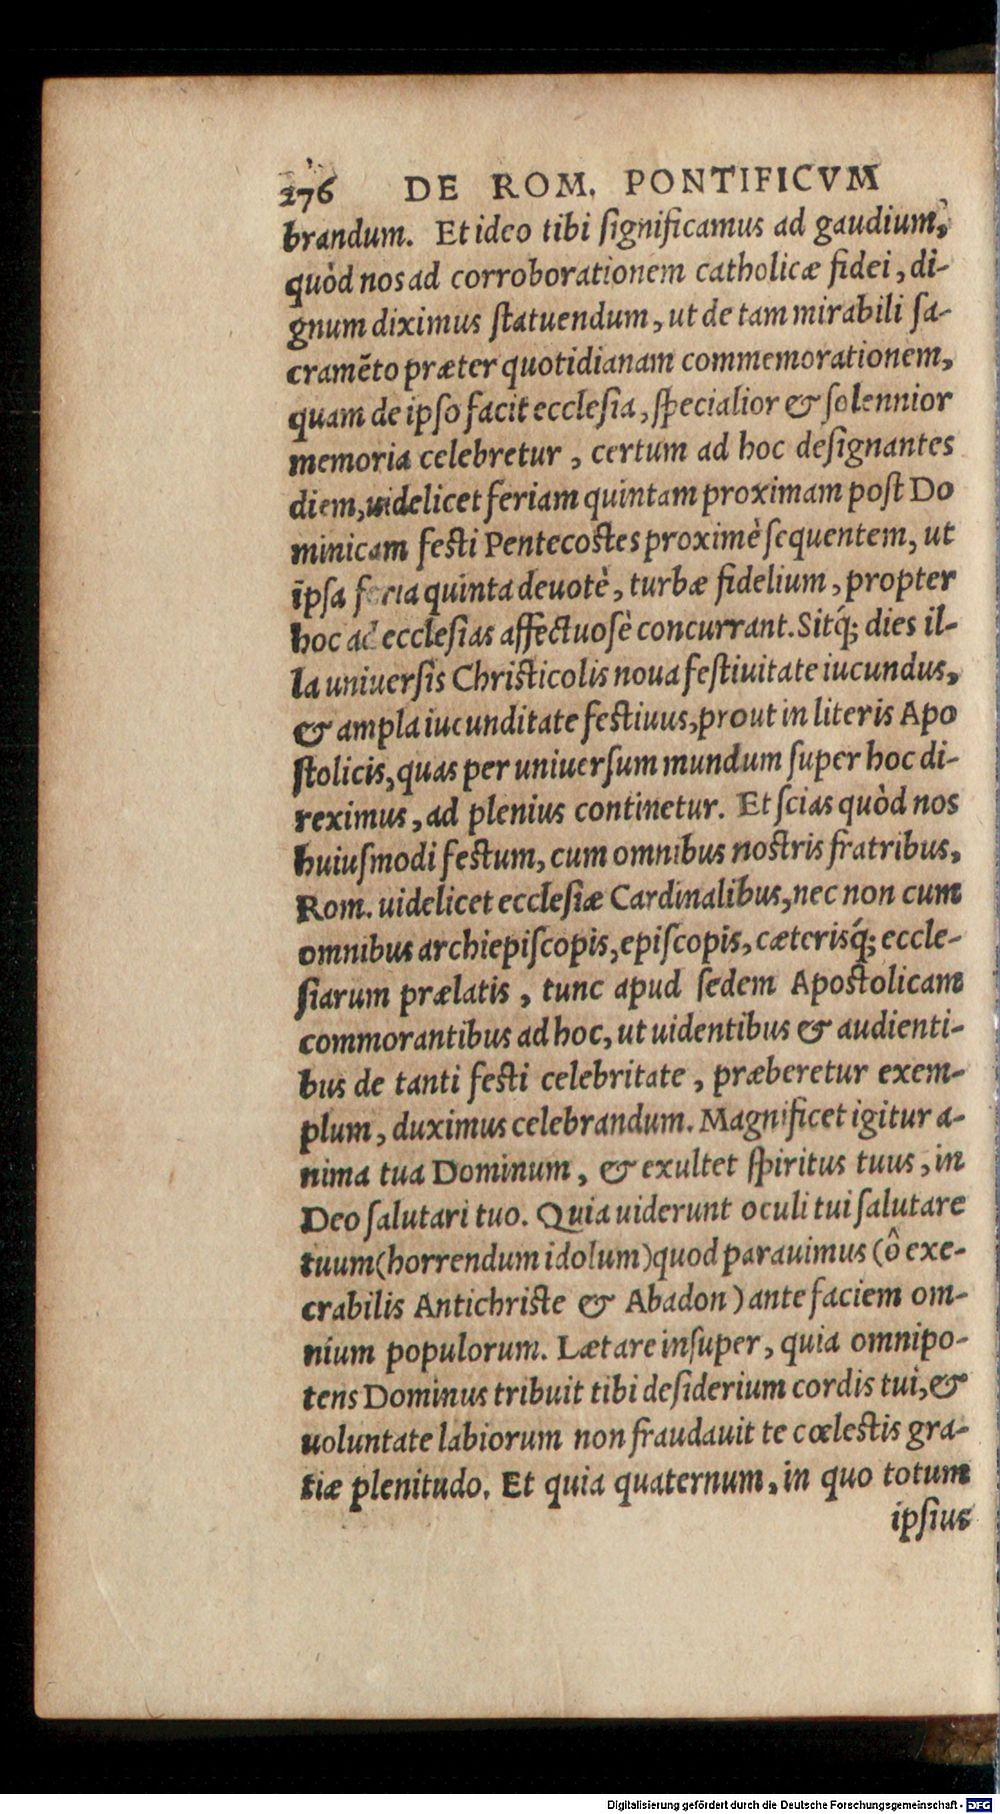 276 DE ROM. PONTIFICVM
brandum. Et ideo tibi ſignificamus ad gaudium,
quòd nos ad corroborationem catholicæ fidei, di-
gnum diximus ſtatuendum, ut de tam mirabili ſa-
cramẽto præter quotidianam commemorationem,
quam de ipſo facit eccleſia, ſpecialior & ſolennior
memoria celebretur, certum ad hoc deſignantes
diem, uidelicet feriam quintam proximam poſt Do
minicam feſti Pentecoſtes proximè ſequentem, ut
ipſa feria quinta deuotè, turbæ fidelium, propter
hoc ad eccleſias affectuoſè concurrant. Sitq́; dies il-
la uniuerſis Chriſticolis noua feſtiuitate iucundus,
& ampla iucunditate feſtiuus, prout in literis Apo
ſtolicis, quas per uniuerſum mundum ſuper hoc di-
reximus, ad plenius continetur. Et ſcias quòd nos
huiuſmodi feſtum, cum omnibus noſtris fratribus,
Rom. uidelicet eccleſiæ Cardinalibus, nec non cum
omnibus archiepiſcopis, epiſcopis, cæterisq́; eccle-
ſiarum prælatis, tunc apud ſedem Apoſtolicam
commorantibus ad hoc, ut uidentibus & audienti-
bus de tanti feſti celebritate, præberetur exem-
plum, duximus celebrandum. Magnificet igitur a-
nima tua Dominum, & exultet ſpiritus tuus, in
Deo ſalutari tuo. Quia uiderunt oculi tui ſalutare
tuum (horrendum idolum) quod parauimus (ô exe-
crabilis Antichriſte & Abadon) ante faciem om-
nium populorum. Lætare inſuper, quia omnipo-
tens Dominus tribuit tibi deſiderium cordis tui, &
uoluntate labiorum non fraudauit te cœleſtis gra-
tiæ plenitudo. Et quia quaternum, in quo totum
ipſius
Digitalisierung gefördert durch die Deutsche Forschungsgemeinschaft - DFG